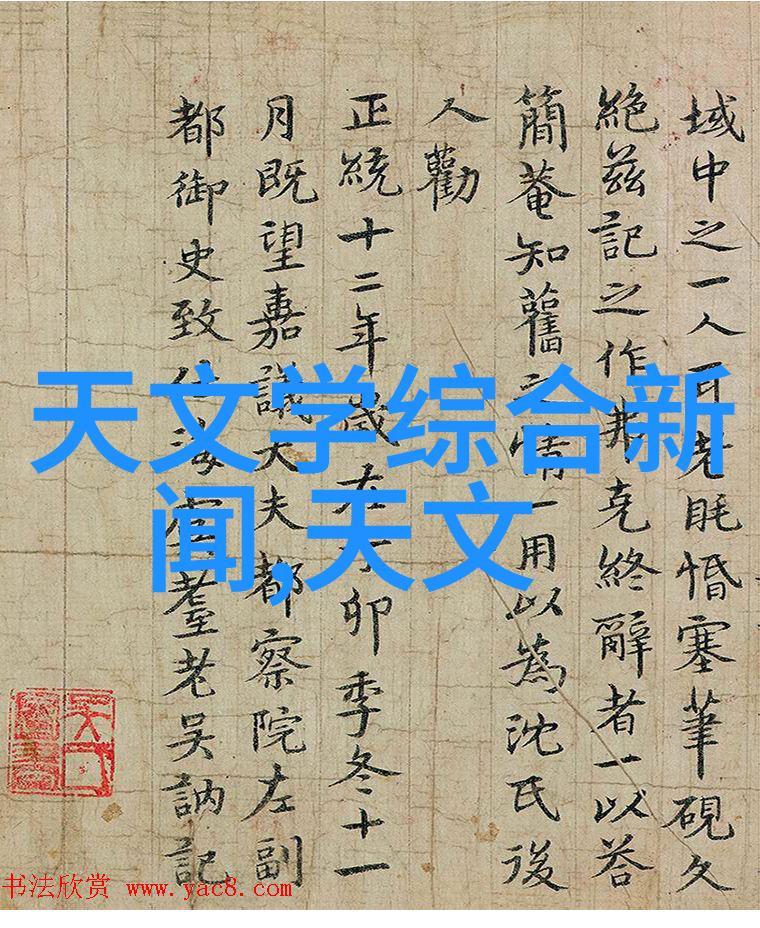 域中之一人耳老眊惛塞筆硯久
絕茲記之作弗克終辭者一以荅
簡菴知舊之情一用以為沈氏後
人勸
正統十二年歲在丁卯季冬十一
月既望嘉議大夫都察院左副
都御史致仕海虞耋老吳訥記
天文学综合新
闻,天文
书法欣赏 www.yac8.com